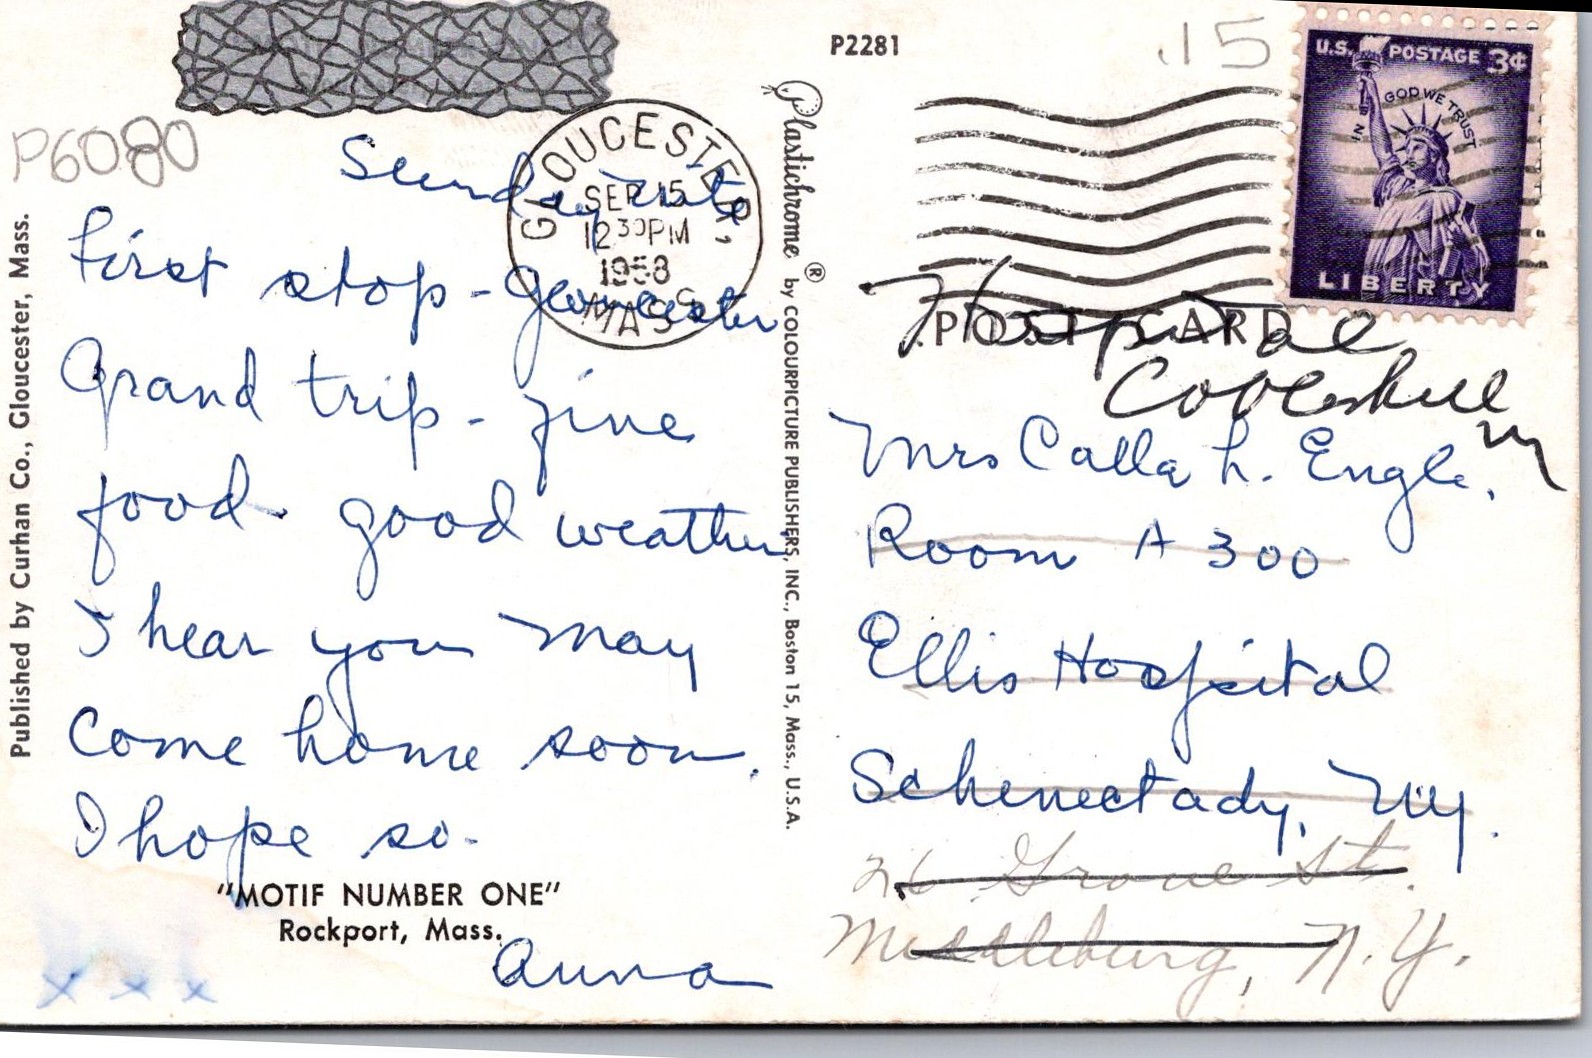 P2281
.15
U.S. POSTAGE 3¢
IN GOD WE TRUST
LIBERTY
P6080
GLOUCESTER,
SEP 15
12 30 PM
1958
MASS
Published by Curhan Co., Gloucester, Mass.
Sunday
first stop - Gloucester
Grand trip - fine
food - good weather
I hear you may
come home soon.
I hope so.
"MOTIF NUMBER ONE"
Rockport, Mass.
Anna
x x x
Plastichrome ® by COLOURPICTURE PUBLISHERS, INC., Boston 15, Mass., U.S.A.
POST CARD
Hospital
Cobleskill
Mrs Calla L. Engle.
Room A 300
Ellis Hospital
Schenectady, NY.
26 Grove St.
Middleburg, N.Y.